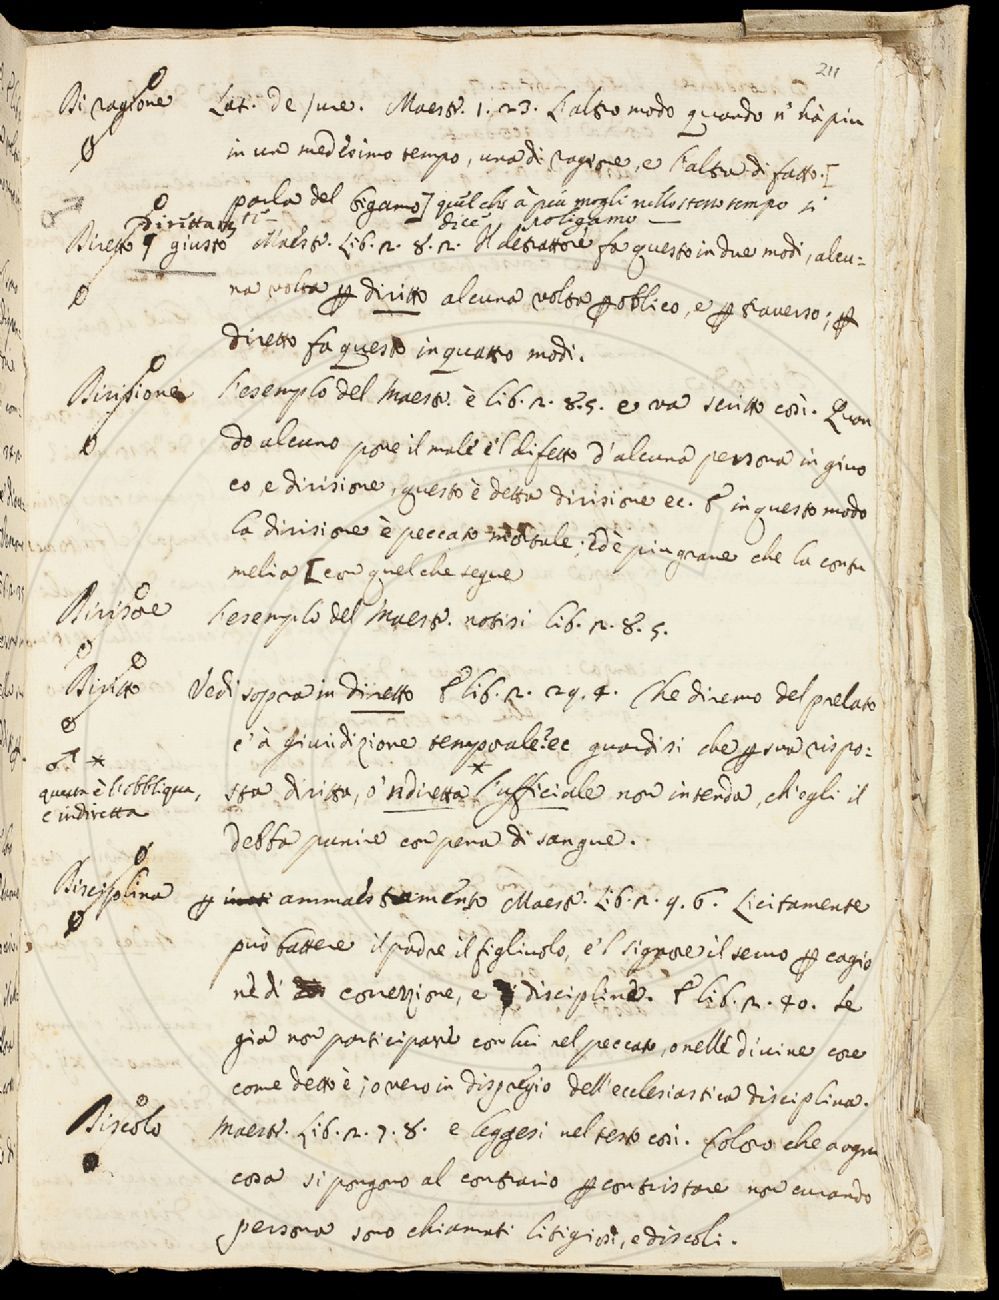 211
Di ragione Lat. de jure. Maestr. 1. 23. L'altro modo quando n' hà piu
in un medesimo tempo, una di ragione, e l'altra di fatto. [
parla del bigamo] quel che à piu mogli nello stesso tempo si
dice poligamo
Dirittam.te
Diretto giusto Maestr. Lib. 2. 8. 2. Il detrattore fa questo in due modi, alcu=
na volta ꝑ diritto alcuna volta ꝑ obblico, e ꝑ traverso; ꝑ
diretto fa questo in quatto modi.
Dirisione L'esemplo del Maestr. è lib. 2. 8. 5. e va scritto così. Quan
do alcuno pone il male e 'l difetto d'alcuna persona in giuo
co, e dirisione, questo è detta dirisione ec. E in questo modo
la dirisione è peccato mortale; Ed è piu grave che la contu
melia [con quel che segue
Dirisore L'esemplo del Maestr. notisi lib. 2. 8. 5.
Diritto Vedi sopra in diretto E lib. 2. 29. 4. Che diremo del prelato
c' à giuridizione temporale? ec guardisi che ꝑ sua rispo=
sta diritta, o ndiretta * l'ufficiale non intenda, ch'egli il
debba punire con pena di sangue.
*
questa è l'obbliqua,
e indiretta
Disciplina ꝑ ammaestramento Maestr. Lib. 2. 9. 6. Licitamente
può battere il padre il figliuolo, e 'l signore il servo ꝑ cagio
ne di correzione, e disciplina. E lib. 2. 40. Se
gia non participare con lui nel peccato, o nelle divine cose
come detto è; overo in dispregio dell'ecclesiastica disciplina.
Discolo Maestr. Lib. 2. 7. 8. e leggesi nel testo così. Coloro che a ogni
cosa si pongono al contrario ꝑ contristare non curando
persona sono chiamati litigiosi, e discoli.